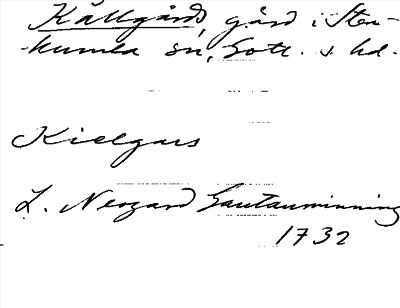 Källgårds, gård i Sten-
kumla sn, Gotl. s. hd.
Kielgars
L. Neogard Gautauminning
1732